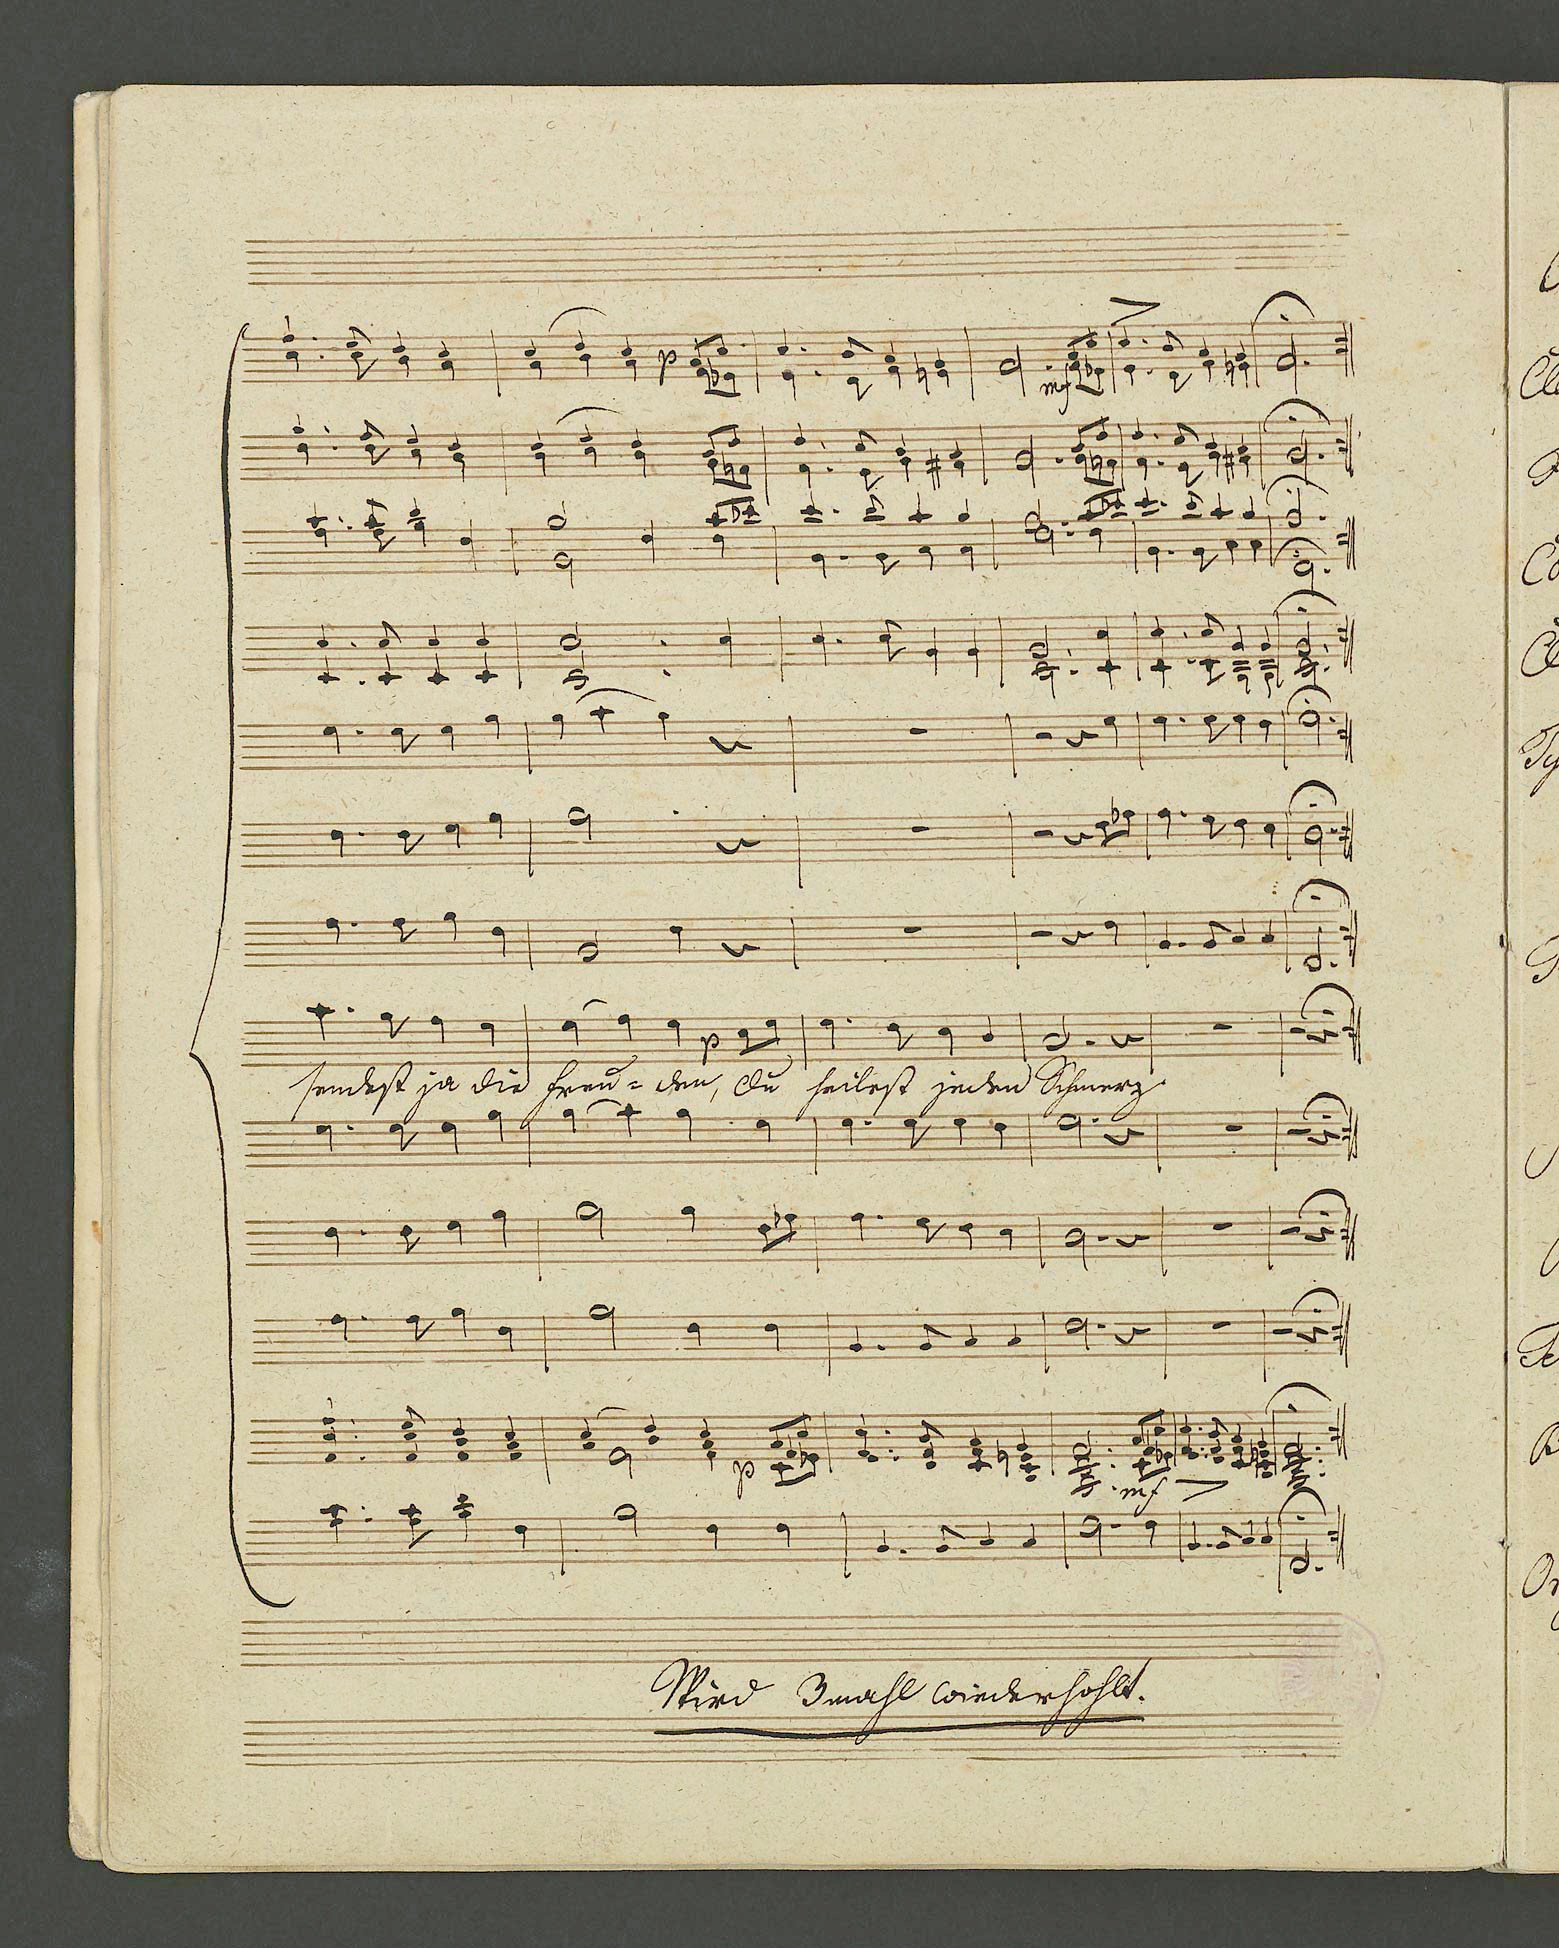 p
mf
p
sendest ja die Freu = den, Du heilest jeden Schmerz.
p
mf
Wird 3mahl wiederhohlt.
Cle
Co
Cl
Ty